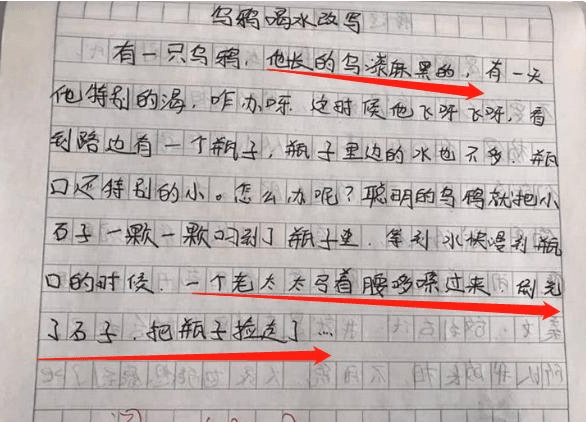 乌鸦喝水改写
有一只乌鸦，他长的乌漆麻黑的，有一天
他特别的渴，咋办呀 这时候他飞呀飞呀，看
到路边有一个瓶子，瓶子里边的水也不多，瓶
口还特别的小。怎么办呢？聪明的乌鸦就把小
石子一颗一颗叼到了瓶子里，等到水快漫到瓶
口的时候，一个老太太弓着腰哆嗦过来 倒光
了石子，把瓶子捡走了…